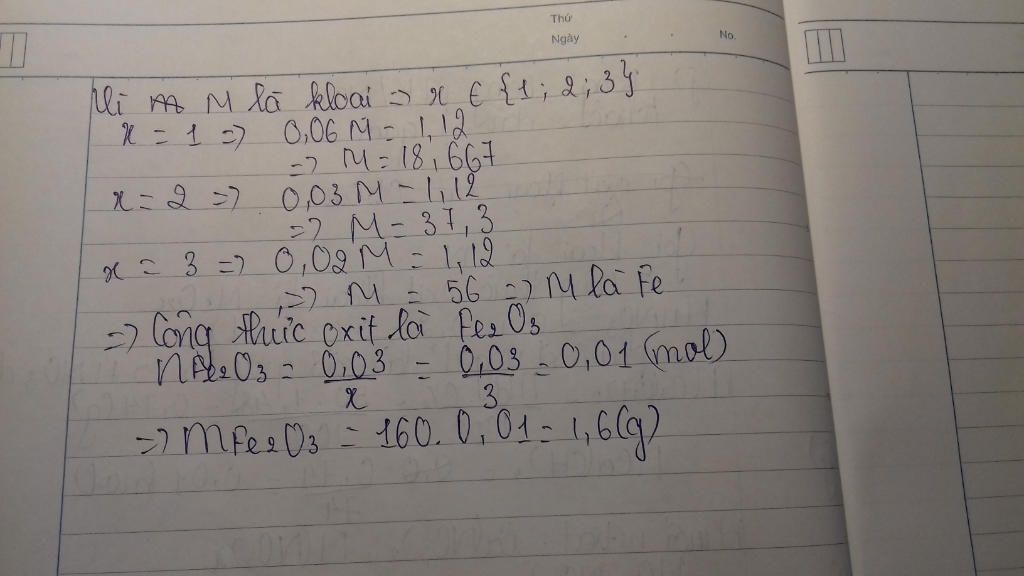 Thứ
Ngày
No.
Vì M là kloại => x ∈ {1; 2; 3}
x = 1 => 0,06 M = 1,12
=> M = 18,667
x = 2 => 0,03 M = 1,12
=> M = 37,3
x = 3 => 0,02 M = 1,12
=> M = 56 => M là Fe
=> Công thức oxit là Fe₂O₃
nFe₂O₃ = 0,03/x = 0,03/3 = 0,01 (mol)
=> mFe₂O₃ = 160. 0,01 = 1,6(g)